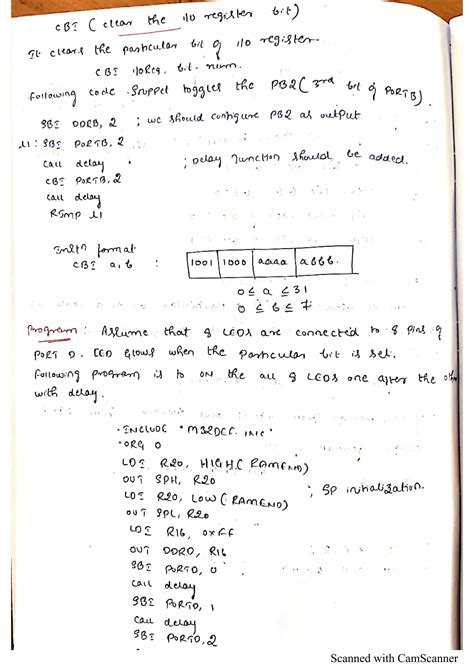 CBI (clear the I/O register bit)
It clears the particular bit of I/O register
CBI I/OReg. bit. num.
Following code snippet toggles the PB2 (3rd bit of PORTB).
SBI DDRB, 2 ; we should configure PB2 as output
L1: SBI PORTB, 2
Call delay ; Delay function should be added.
CBI PORTB, 2
Call delay
RJmp L1
Instn format
CBI a, b : 1001 1000 aaaa abbb.
0 ≤ a ≤ 31
0 ≤ b ≤ 7
Program: Assume that 8 LEDs are connected to 8 pins of
PORT D. LED glows when the particular bit is set.
Following program is to ON the all 8 LEDS one after the
with delay.
.INCLUDE "M32DEF.INC"
.ORG 0
LDI R20, HIGH(RAMEND)
OUT SPH, R20
LDI R20, LOW(RAMEND) ; SP initialization.
OUT SPL, R20
LDI R16, 0xFF
OUT DDRD, R16
SBI PORTD, 0
Call delay
SBI PORTD, 1
Call delay
SBI PORTD, 2
Scanned with CamScanner